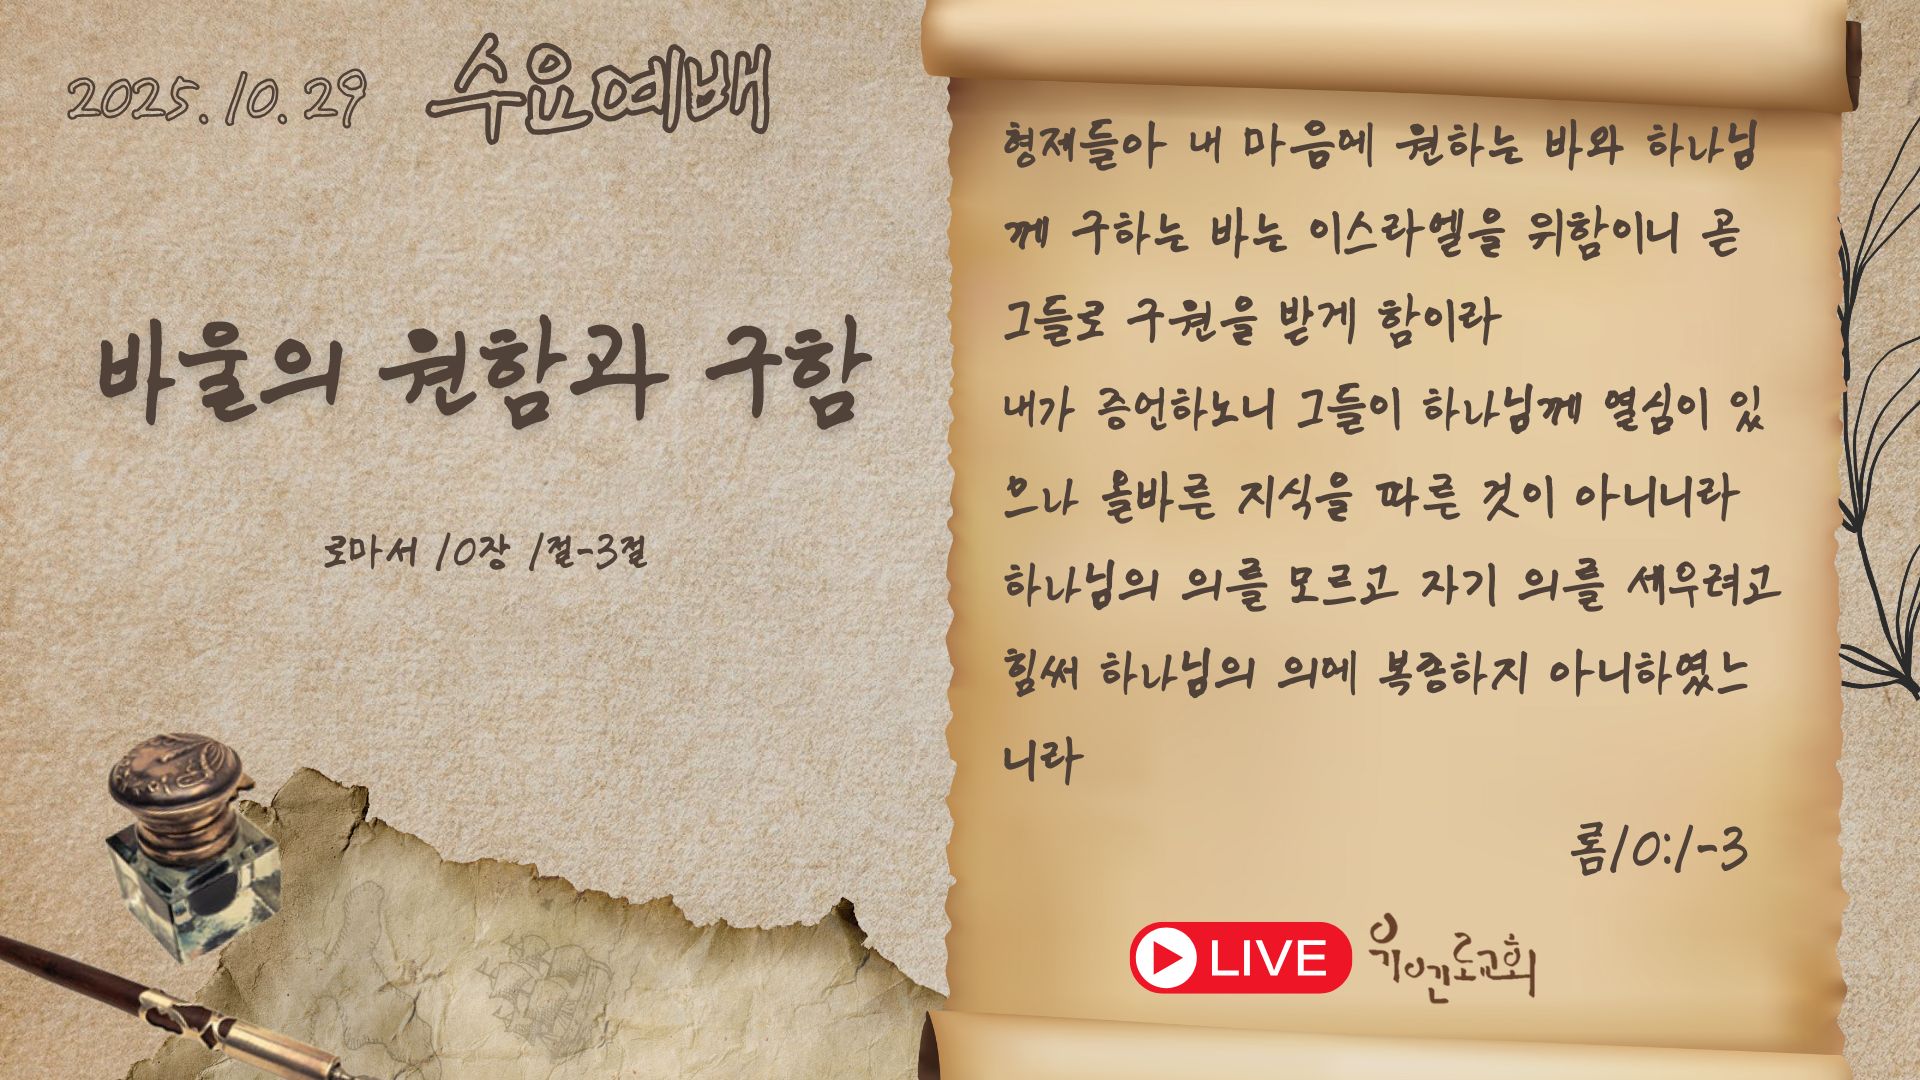 2025.10.29 수요예배
바울의 원함과 구함
로마서 10장 1절-3절
형제들아 내 마음에 원하는 바와 하나님
께 구하는 바는 이스라엘을 위함이니 곧
그들로 구원을 받게 함이라
내가 증언하노니 그들이 하나님께 열심이 있
으나 올바른 지식을 따른 것이 아니니라
하나님의 의를 모르고 자기 의를 세우려고
힘써 하나님의 의에 복종하지 아니하였느
니라
롬10:1-3
LIVE